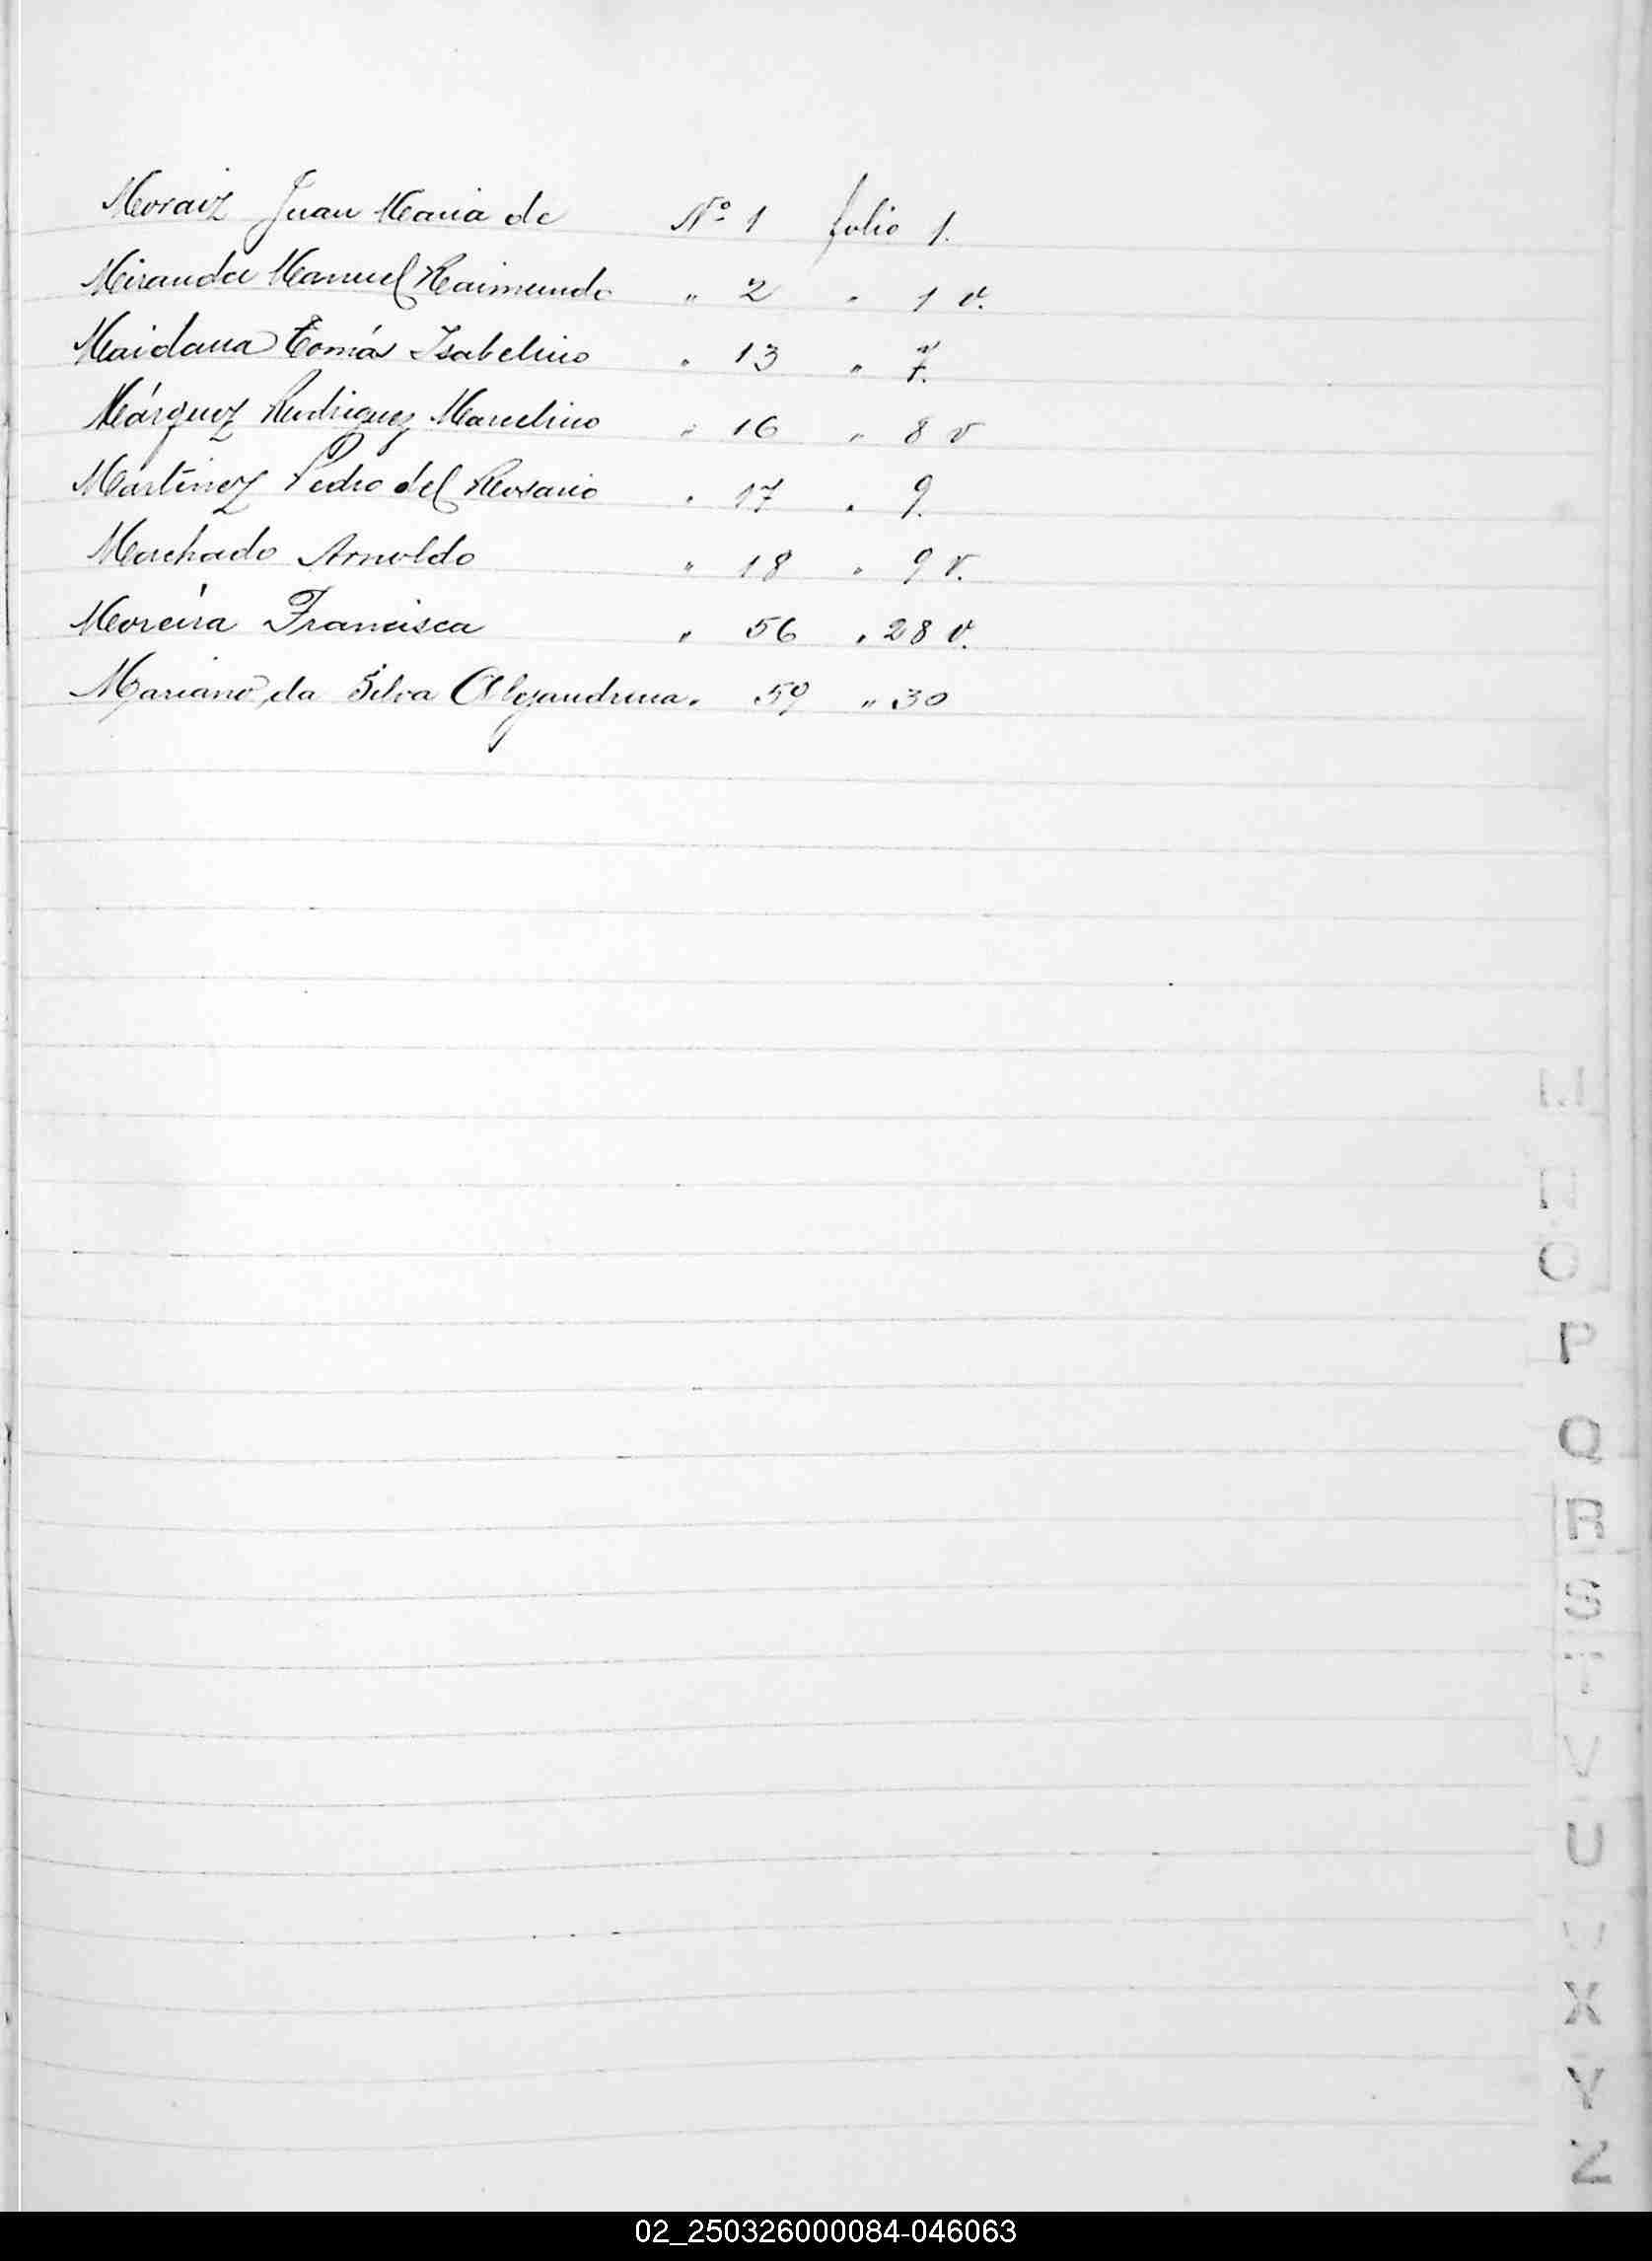 Moraiz Juan Maria de Nº 1 folio 1.
Miranda Manuel Raimundo " 2 " 1 v.
Maidana Tomás Isabelino " 13 " 7.
Márquez Rudriguez Marcelino " 16 " 8 v
Martinez Pedro del Rosario " 17 " 9.
Machado Arnoldo " 18 " 9 v.
Moreira Francisca " 56 " 28 v.
Mariano da Silva Alejandrina " 59 " 30
M
N
O
P
Q
R
S
T
V
U
X
Y
Z
02_250326000084-046063